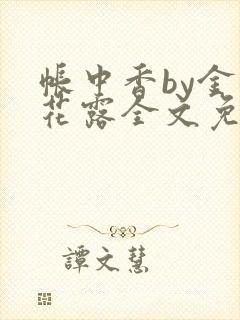 帐中香by金
花露全文免
譚文慧